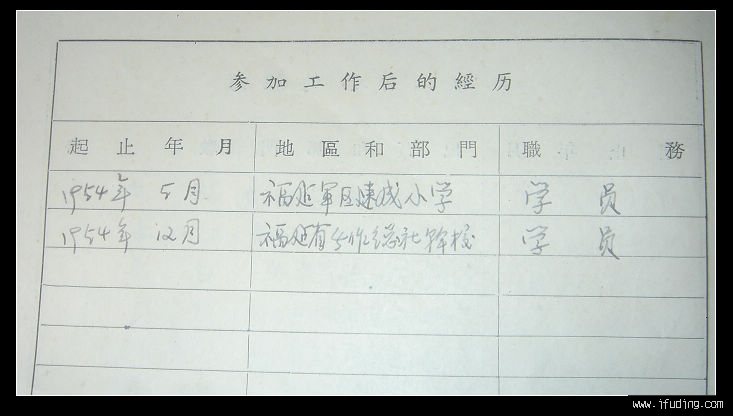 参加工作后的經历
起止年月 地區和部門 職務
1954年 5月 福建军区速成小学 学员
1954年 12月 福建省合作总社幹校 学员
www.ifuding.com